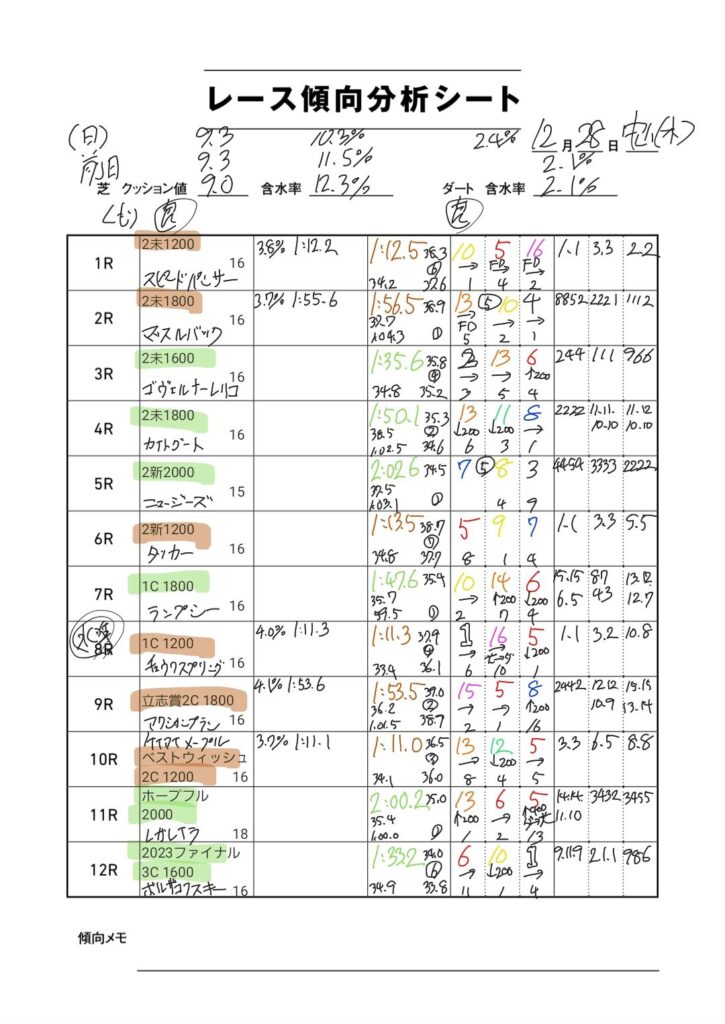 レース傾向分析シート
(日) 9.3 10.3% 2.4% 12月28日 中山(木)
前日 9.3 11.5% 2.1%
芝 クッション値 9.0 含水率 12.3% ダート 含水率 2.1%
良 良
1R 2未1200 16 3.8% 1:12.2 1:12.5 38.3 10 5 16 1.1 3.3 2.2
スピードパンサー 34.2 37.6 1 4 2
2R 2未1800 16 3.7% 1:55.6 1:56.5 38.9 13 ⑤ 10 4 8852 2221 1112
マッスルバック 37.7 1:04.3 ① 5 2 1
3R 2未1600 16 1:35.6 35.8 2 13 6 244 111 966
ゴヴェルナーレリコ 34.8 35.2 3 5 4
4R 2未1800 16 1:50.1 35.3 13 11 8 2222 11.11.10.10 11.12.10.10
カイトグート 38.5 1:02.5 34.6 6 3 1
5R 2新2000 15 2:02.6 34.5 7 ⑤ 8 3 4454 3333 2222
ニュージーズ 37.5 1:03.1 ① 4 9
6R 2新1200 16 1:13.5 38.7 5 9 7 1.1 3.3 5.5
タッカー 34.8 37.7 8 1 4
7R 1C 1800 16 1:47.6 35.4 10 14 6 15.15.6.5 8743 13.12.12.7
ランプシー 35.7 59.5 ① 2 7 4
8R 1C 1200 16 4.0% 1:11.3 1:11.3 37.9 1 16 5 1.1 3.2 10.8
チュウワスプリング 33.4 36.1 6 10 1
9R 立志賞2C 1800 16 4.1% 1:53.6 1:53.5 39.0 15 5 8 2442 12.12.10.9 15.15.13.14
36.2 1:01.5 38.7 2 1 16
ケイアイメープル
10R ベストウィッシュ 3.7% 1:11.1 1:11.0 36.5 13 12 5 3.3 6.5 8.8
2C 1200 16 34.1 36.0 8 4 5
11R ホープフル 2:00.2 35.0 13 6 5 14.14.11.10 3432 3455
2000 35.4
レガレイラ 18 1:00.0 1 2 13
12R 2023ファイナル 1:33.2 34.0 6 10 1 9.11.9 2.1.1 986
3C 1600
ボルザコフスキー 16 34.9 33.8 11 1 4
傾向メモ